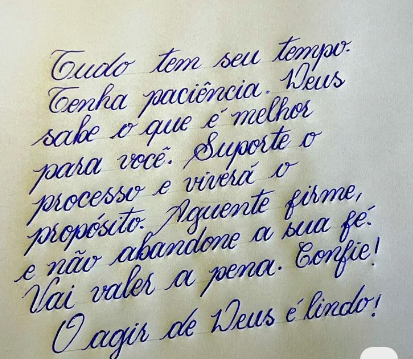 Tudo tem seu tempo.
Tenha paciência. Deus
sabe o que é melhor
para você. Suporte o
processo e viverá o
propósito. Aguente firme,
e não abandone a sua fé.
Vai valer a pena. Confie!
O agir de Deus é lindo!